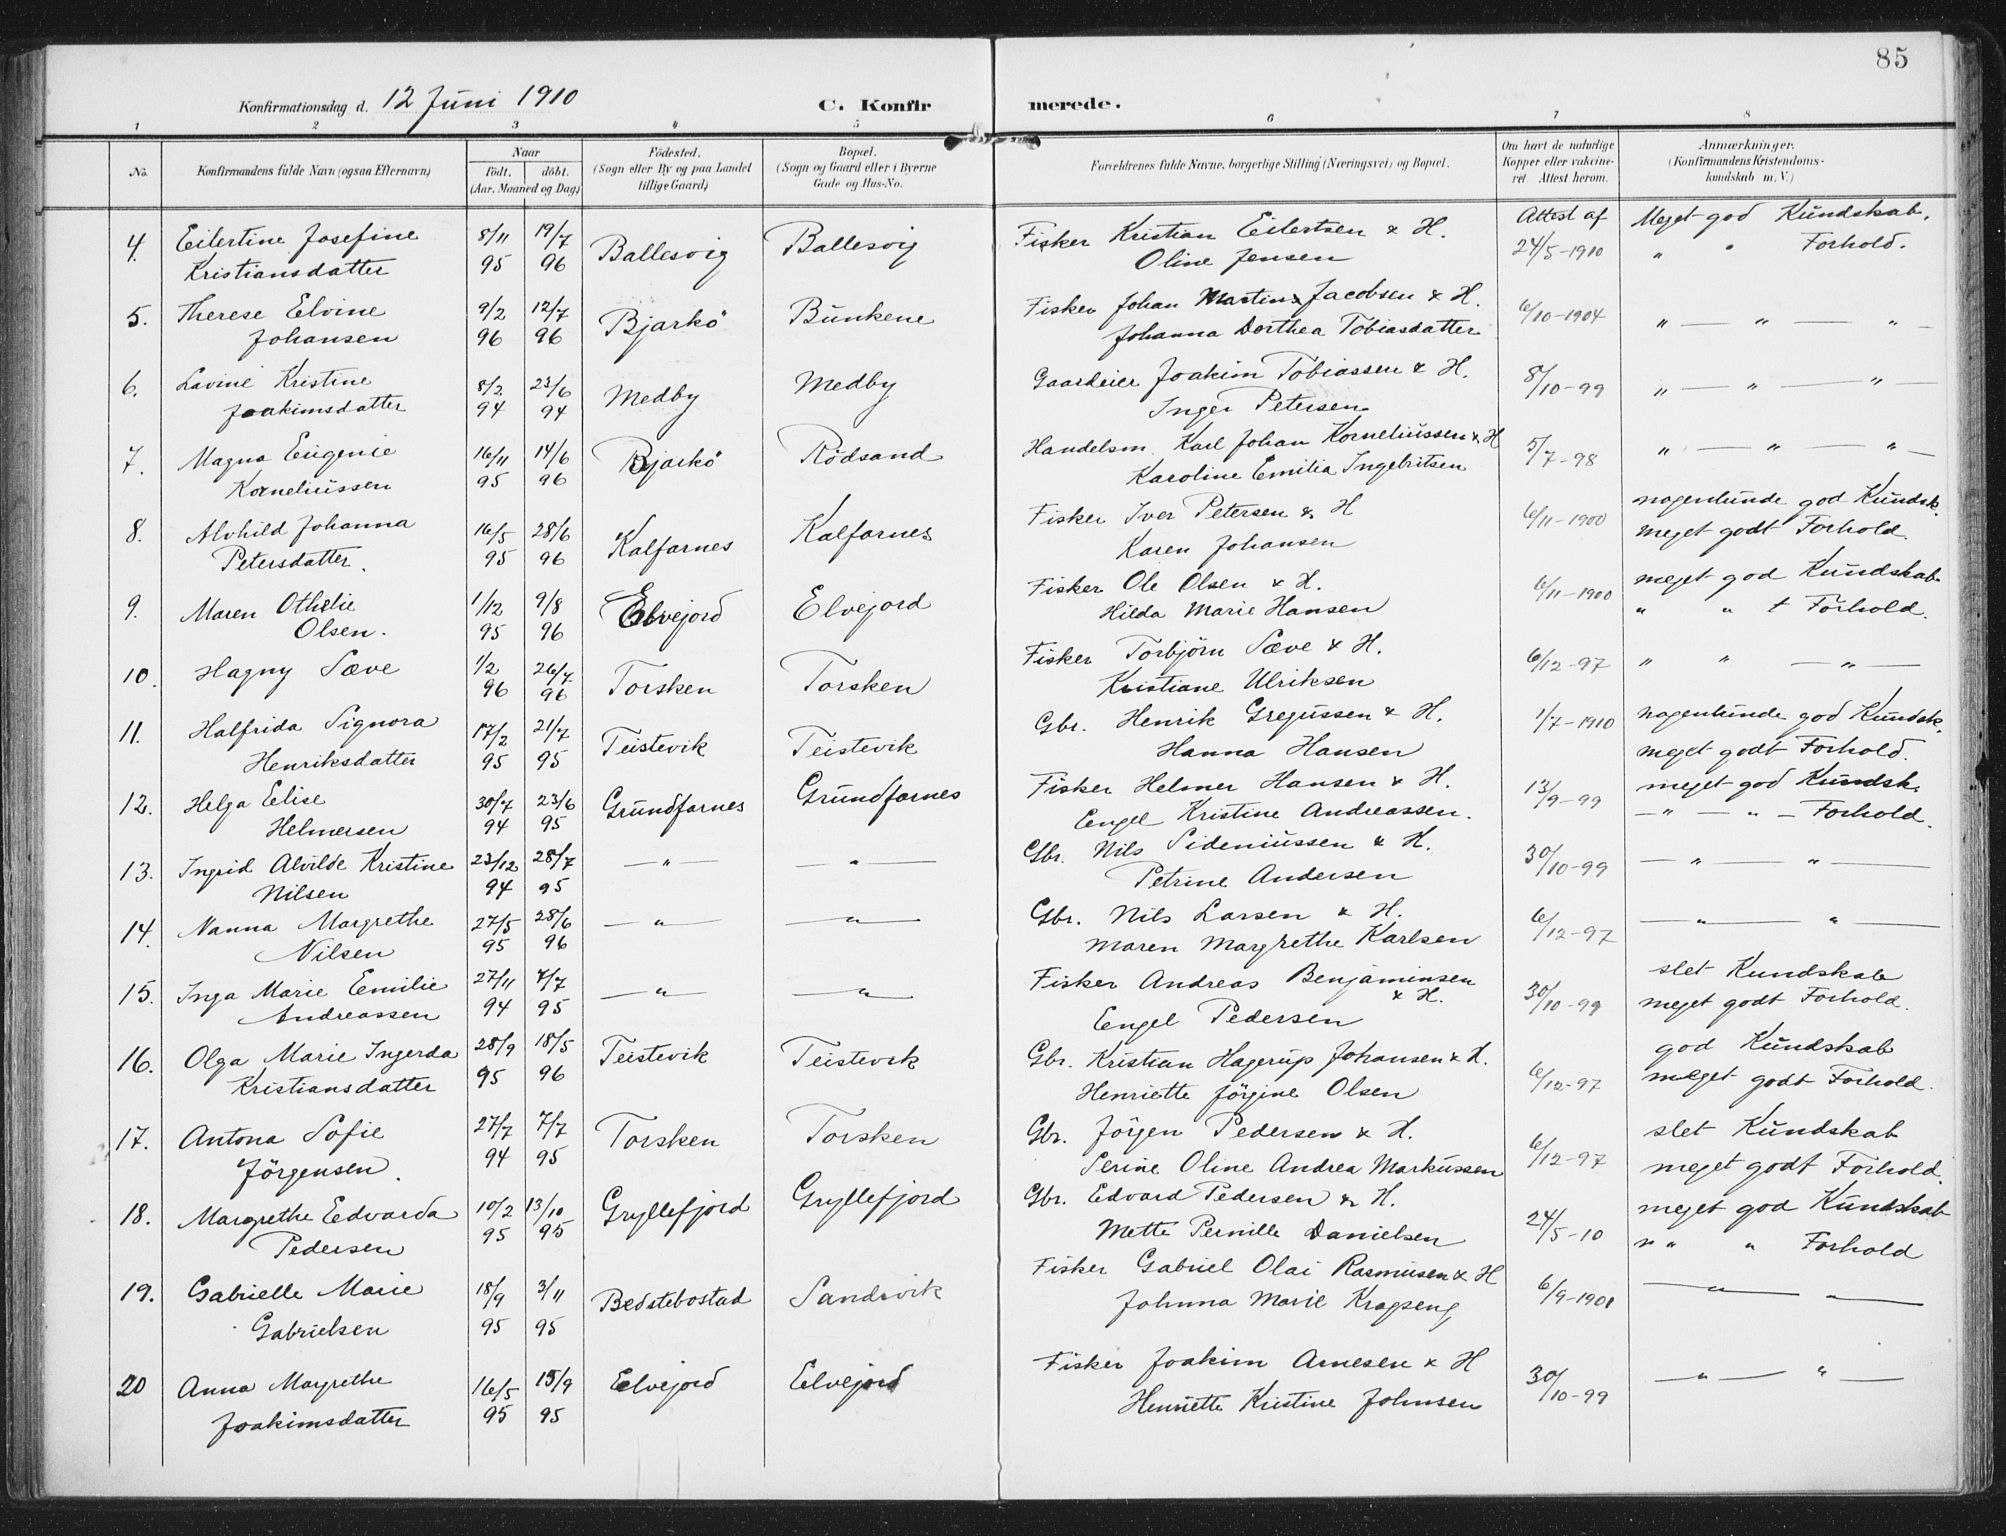 85
Konfirmationsdag d. 12 Juni 1910 C. Konfirmerede.
1 2 3 4 5 6 7 8
No. Konfirmandens fulde Navn (ogsaa Efternavn) Naar födt. döbt. (Aar, Maaned og Dag) Födested. (Sogn eller By og paa Landet tillige Gaard) Bopæl. (Sogn og Gaard eller i Byerne Gade og Hus-No. Forældrenes fulde Navne, borgerlige Stilling (Næringsvei) og Bopæl. Om havt de naturlige Kopper eller vakcineret. Attest herom. Anmærkninger. (Konfirmandens Kristendomskundskab m. V.)
4. Eilertine Josefine 8/11 19/7 Ballesvig Ballesvig Fisker Kristian Eilertsen & H. Attest af Meget god Kundskab.
Kristiansdatter 95 96 Oline Jensen 24/5-1910 " " Forhold.
5. Therese Elvine 9/2 12/7 Bjarkö Bunkene Fisker Johan Martin Jacobsen & H. 6/10-1904
Johansen 96 96 Johanna Dorthea Tobiasdatter " — " — " —
6. Lavine Kristine 8/2 23/6 Medby Medby Gaardeier Joakim Tobiassen & H. 8/10-99
Joakimsdatter 94 94 Inger Petersen " — " — " —
7. Magna Eugenie 16/11 14/6 Bjarkö Rödsand Handelsm. Karl Johan Korneliussen & H 5/7-98
Korneliussen 95 96 Karoline Emilia Ingebritsen " — " — " —
8. Alvhild Johanna 16/5 28/6 Kalfarnes Kalfarnes Fisker Iver Petersen & H 6/11-1900 nogenlunde god Kundsk.
Petersdatter. 95 96 Karen Johansen meget godt Forhold.
9. Maren Othelie 1/12 9/8 Elvejord Elvejord Fisker Ole Olsen & H. 6/11-1900 meget god Kundskab
Olsen. 95 96 Hilda Marie Hansen " " t Forhold.
10. Hagny Sæve 1/2 26/7 Torsken Torsken Fisker Torbjörn Sæve & H. 6/12-97 " " — " —
96 96 Kristiane Ulriksen
11. Halfrida Signora 17/2 21/7 Teistevik Teistevik Gbr. Henrik Gregussen & H. 1/7-1910 nogenlunde god Kundsk.
Henriksdatter 95 95 Hanna Hansen meget godt Forhold.
12. Helga Elise 30/7 23/6 Grundfarnes Grundfarnes Fisker Helmer Hansen & H. 13/9-99 meget god Kundsk.
Helmersen 94 95 Engel Kristine Andreassen. — " — " — Forhold.
13. Ingrid Alvilde Kristine 23/12 28/7 — " — — " — Gbr. Nils Sideniussen & H. 30/10-99 — " — " —
Nilsen 94 95 Petrine Andersen
14. Nanna Margrethe 27/5 28/6 — " — — " — Gbr. Nils Larsen & H. 6/12-97 — " — " —
Nilsen 95 96 Maren Margrethe Karlsen
15. Inga Marie Emilie 27/11 7/7 — " — — " — Fisker Andreas Benjaminsen & H. 30/10-99 slet Kundskab
Andreassen 94 95 Engel Pedersen meget godt Forhold.
16. Olga Marie Ingerda 28/9 18/5 Teistevik Teistevik Gbr. Kristian Hagerup Johansen & H. 6/12-97 god Kundskab
Kristiansdatter 95 96 Henriette Jörgine Olsen meget godt Forhold.
17. Antona Sofie 27/7 7/7 Torsken Torsken Gbr. Jörgen Pedersen & H. 6/12-97 slet Kundskab
Jörgensen. 94 95 Serine Oline Andrea Markussen meget godt Forhold.
18. Margrethe Edvarda 10/2 13/10 Gryllefjord Gryllefjord Gbr. Edvard Pedersen & H. 24/5-10 meget god Kundskab
Pedersen 95 95 Mette Pernille Danielsen " " " Forhold
19. Gabrielle Marie 18/9 3/11 Bedstebostad Sandsvik Fisker Gabriel Olai Rasmusen & H 6/9-1901 — " — " —
Gabrielsen 95 95 Johnna Marie Kragseng
20 Anna Margrethe 16/5 15/9 Elvejord Elvejord Fisker Joakim Arnesen & H 30/10-99 — " — " —
Joakimsdatter 95 95 Henriette Kristine Johnsen